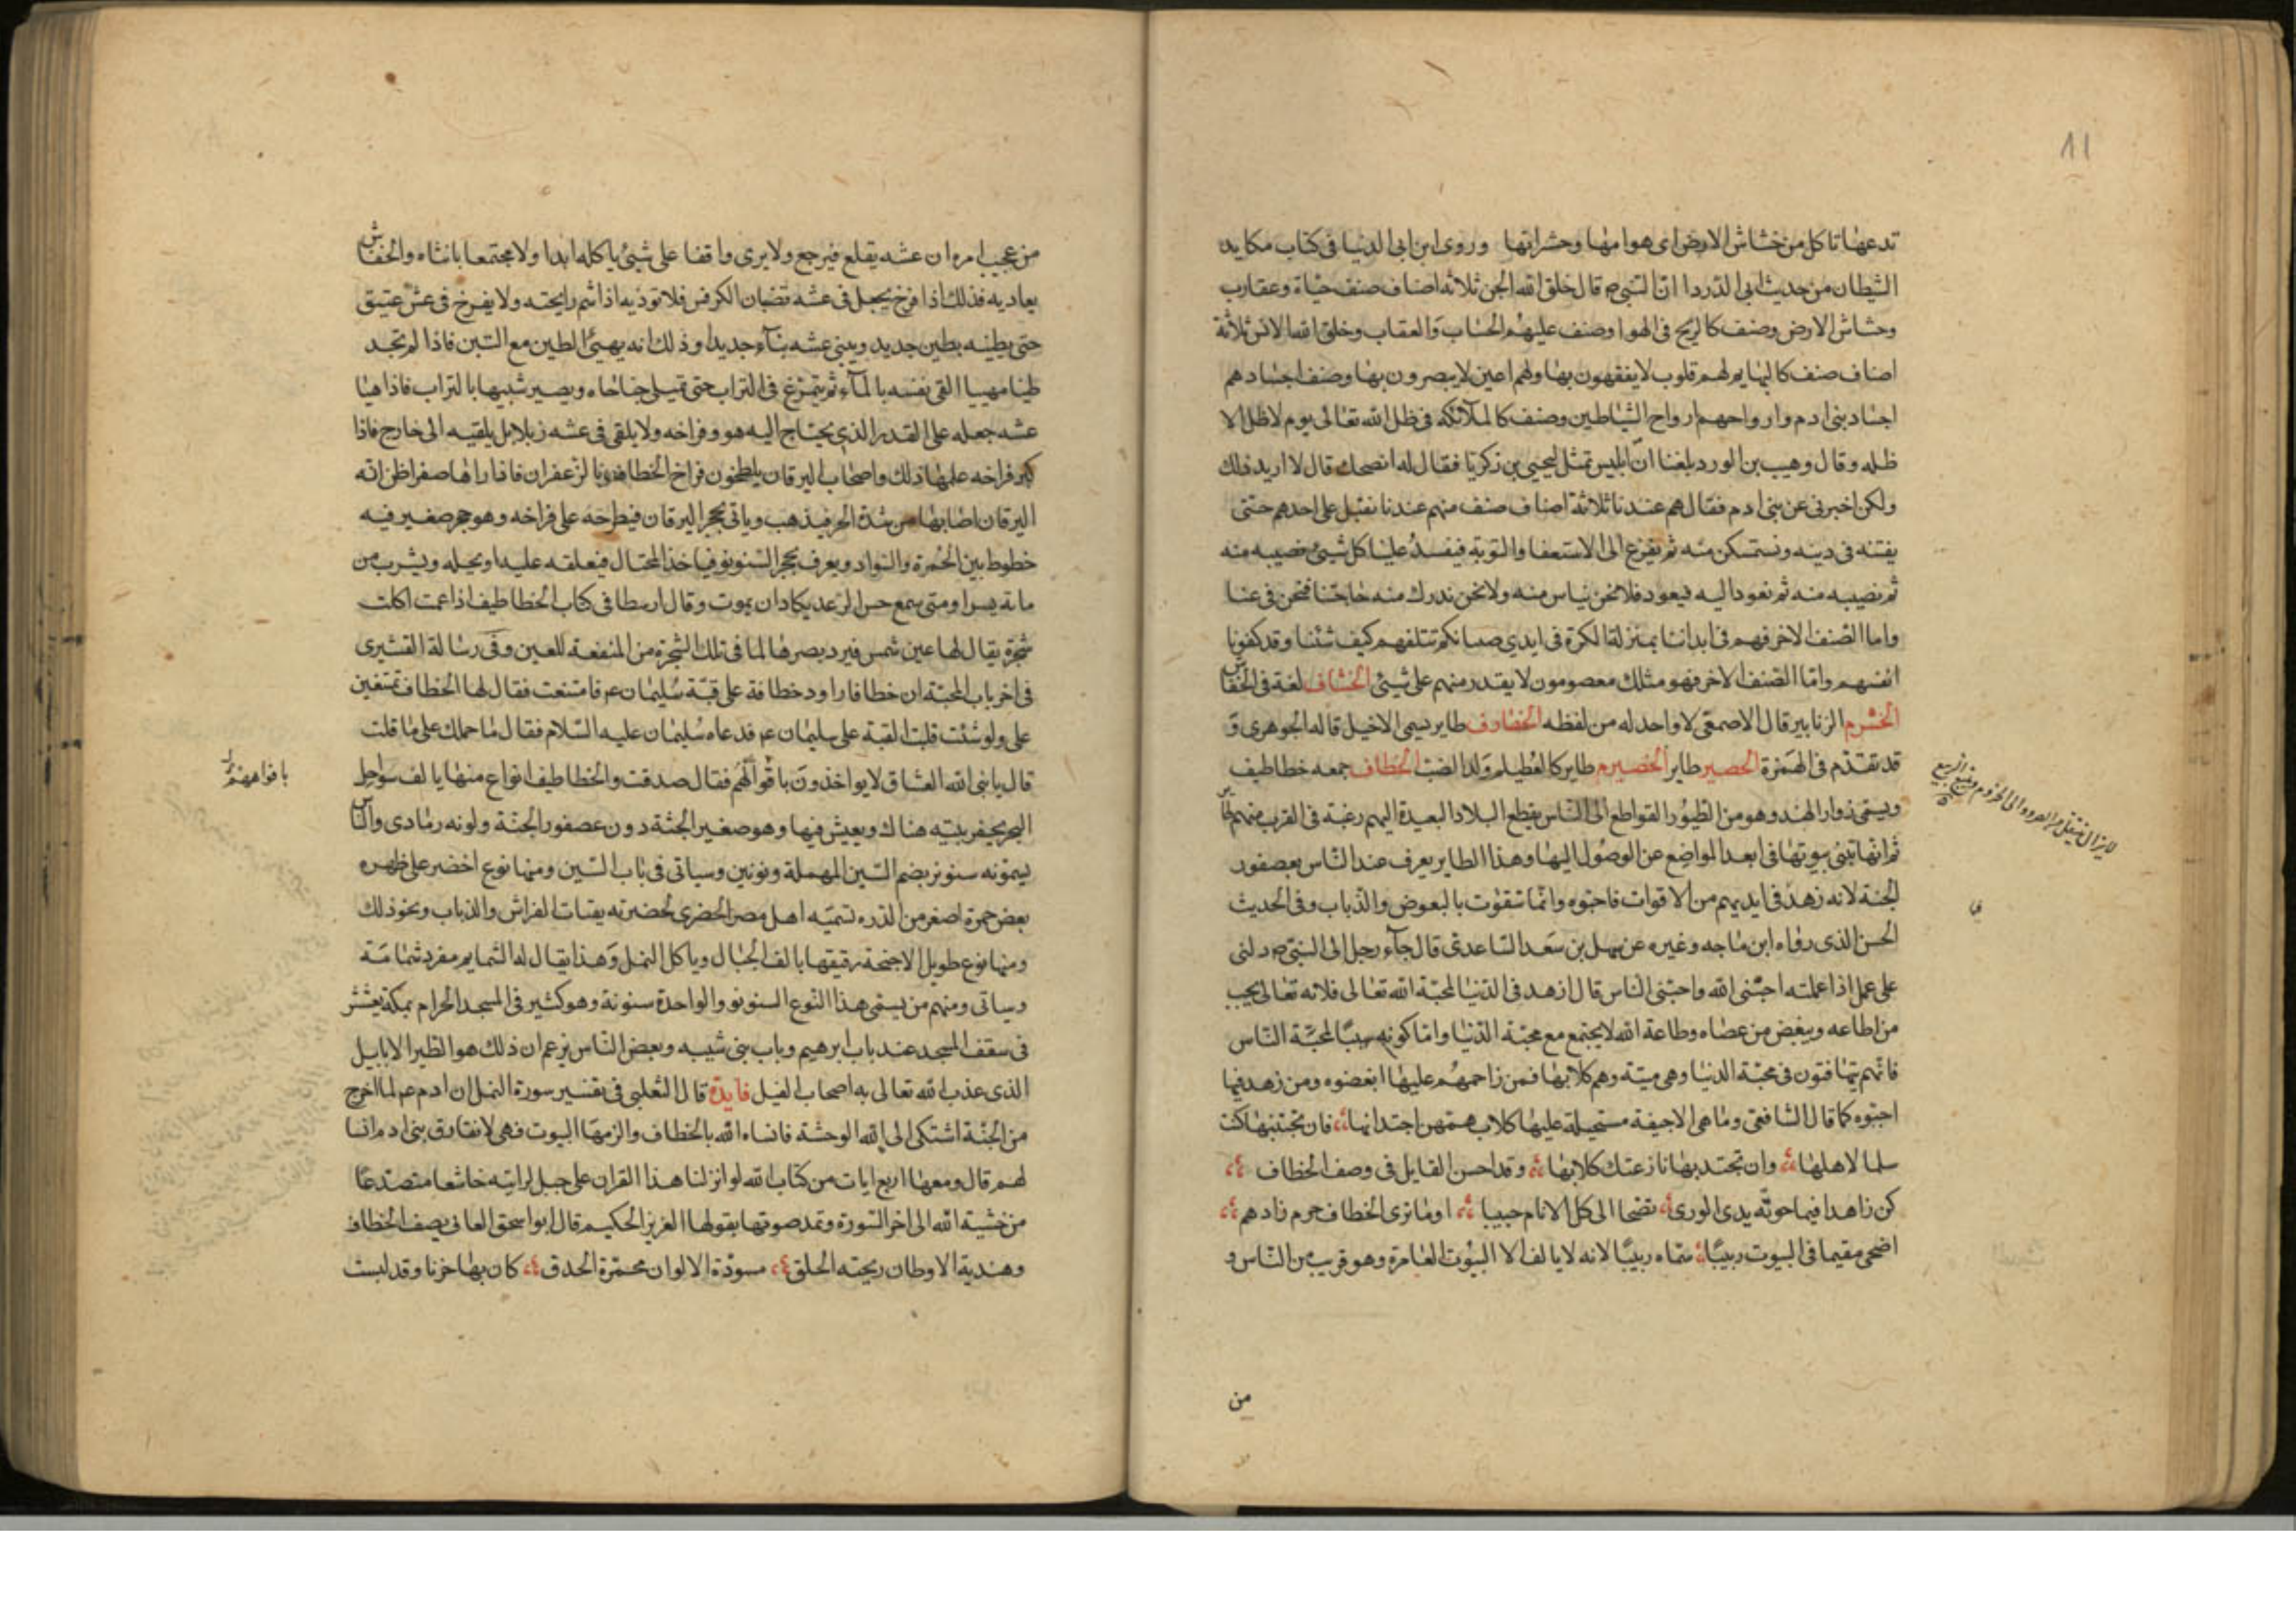 11
تدعها تاكل من خشاش الارض اى هوامها وحشراتها وروى ابن ابى الدنيا فى كتاب مكايد
الشيطان من حديث ابى الدردا ان النبى ص قال خلق الله الجن ثلاثه اصناف صنف حياة وعقارب
وحشاش الارض وصنف كالريح فى الهوا وصنف عليهم الحساب والعقاب وخلق الله الانس ثلاثة
اصناف صنف كالبهايم لهم قلوب لا يفقهون بها ولهم اعين لا يبصرون بها وصنف اجسادهم
اجساد بنى ادم وارواحهم ارواح الشياطين وصنف كالملآئكه فى ظل الله تعالى يوم لا ظل الا
ظله وقال وهيب بن الورد بلغنا ان ابليس تمثل ليحيى بن زكريا فقال له انصحك قال لا اريد ذلك
ولكن اخبرنى عن بنى ادم فقال هم عندنا ثلاثة اصناف صنف منهم عندنا نقبل على احدهم حتى
يفتنه فى دينه ونستمكن منه ثم يفزع الى الاستغفا والتوبة فيفسد علينا كل شيئ نصيبه منه
ثم نصيبه منه ثم نعود اليه فيعود فلا نحن نياس منه ولا نحن ندرك منه حاجتنا فنحن فى عنا
واما الصنف الاخر فهم فى ايدينا بمنزلة الكرة فى ايدي صبيانكم نتلقهم كيف شئنا وقد كفونا
انفسهم واما الصنف الاخر فهو مثلك معصومون لا يقدر منهم على شيئ الخشاف لغة فى الخفاش
الخشرم الزنابير قال الاصمعى لا واحد له من لفظه الخضارف طاير يسمى الاخيل قاله الجوهرى و
قد تقدم فى الهمزة الحصير طاير الخضيرم طاير كالغطيلم ولد الضب الخطاف جمعه خطاطيف
ويسمى زوار الهند وهو من الطيور القواطع الى الناس يقطع البلاد البعيدة اليهم رغبة فى القرب منهم
ثم انها تبنى بيوتها فى ابعد المواضع عن الوصول اليها وهذا الطاير يعرف عند الناس بعصفور
الجنة لانه زهد فى ايديهم من الاقوات فاحبوه وانما تتقوت بالبعوض والذباب وفى الحديث
الحسن الذى رواه ابن ماجه وغيره عن سهل بن سعد الساعدى قال جآء رجل الى النبى ص دلنى
على عمل اذا عملته احبنى الله واحبنى الناس قال ازهد فى الدنيا لمحبة الله تعالى فلانه تعالى يحب
من اطاعه ويبغض من عصاه وطاعة الله لا يجتمع مع محبة الدنيا واما كونه سببا لمحبة الناس
فانهم يتهافتون فى محبة الدنيا وهى ميتة وهم كلابها فمن زاحمهم عليها ابغضوه ومن زهد فيها
احبوه كما قال الشافعى وما هى الا جيفة مستحيلة عليها كلاب همتهن اجتذابها فان تجتنبها كنت
سلما لاهلها وان تجتذبها نازعتك كلابها وقد احسن القايل فى وصف الخطاف
كن زاهدا فيما حوته يدى الورى تضحا الى كل الانام حبيبا اوما ترى الخطاف حرم زادهم
اضحى مقيما فى البيوت ربيبا سماه ربيبا لانه لا يالف الا البيوت العامرة وهو قريب من الناس و
من
من عجيب امره ان عشه يقلع فيرجع ولا يرى واقفا على شيئ ياكله ابدا ولا مجتمعا بانثاه والخفاش
يعاديه فلذلك اذا فرخ يجعل فى عشه قضبان الكرفس فلا توذيه اذا شم رايحته ولا يفرخ فى عش عتيق
حتى يطينه بطين جديد ويبنى عشه بنآء جديدا وذلك انه يهيئ الطين مع التبن فاذا لم تجد
طينا مهييا القى نفسه بالمآء ثم يتمرغ فى التراب حتى تمتلى جناحاه ويصير شبيها بالتراب فاذا هيا
عشه جعله على القدر الذى يحتاج اليه هو وفراخه ولا يلقى فى عشه زبلا بل يلقيه الى خارج فاذا
كبر فراخه علمها ذلك واصحاب اليرقان يلطخون فراخ الخطاف بالزعفران فاذا راها صفرا ظن انه
اليرقان اصابها من شدة الحر فيذهب وياتى بحجر اليرقان فيطرحه على فراخه وهو حجر صغير فيه
خطوط بين الحمرة والسواد ويعرف بحجر السنونو فياخذ المحتال فيعلقه عليه او يحيله ويشرب من
مآئه يسيرا ومتى سمع حس الرعد يكاد ان يموت وقال ارسطا فى كتاب الخطاطيف اذا عمت اكلت
شجرة يقال لها عين شمس فيرد بصرها لما فى تلك الشجرة من المنفعة للعين وفى رسالة القشيرى
فى اخر باب المحبة ان خطافا راود خطافة على قبة سليمان عم فامتنعت فقال لها الخطاف تمتنعين
على ولو شئت قلبت القبة على سليمان عم فدعاه سليمان عليه السلام فقال ما حملك على ما قلت
قال يا نبى الله العشاق لا يواخذون باقوالهم فقال صدقت والخطاطيف انواع منها يالف سواحل
البحر يحفر بيته هناك ويعيش فيها وهو صغير الجثة دون عصفور الجنة ولونه رمادى والناس
يسمونه سنونو بضم السين المهملة ونونين وسياتى فى باب السين ومنها نوع اخضر على ظهره
بعض حمرة اصغر من الدره تسميه اهل مصر الخضرى لخضرته يقتات الفراش والذباب ونحو ذلك
ومنها نوع طويل الاجنحة رقيقها يالف الجبال وياكل النمل وهذا يقال له السمايم مفرد سمامة
وسياتى ومنهم من يسمى هذا النوع السنونو والواحدة سنونة وهو كثير فى المسجد الحرام بمكة يعشش
فى سقف المسجد عند باب ابرهيم وباب بنى شيبه وبعض الناس يزعم ان ذلك هو الطير الابابيل
الذى عذب الله تعالى به اصحاب الفيل فايدة قال الثعلبى فى تفسير سورة النمل ان ادم عم لما اخرج
من الجنة اشتكى الى الله الوحشة فانساه الله بالخطاف والزمها البيوت فهى لا تفارق بنى ادم انسا
لهم قال ومعها اربع ايات من كتاب الله لو انزلنا هذا القران على جبل لرايته خاشعا متصدعا
من خشية الله الى اخر السورة وتمد صوتها بقولها العزيز الحكيم قال ابو اسحق الصابى يصف الخطاف
وهندية الاوطان زنجية الخلق مسودة الالوان محمرة الحدق كان بها حزنا وقد لبست
بافواههم